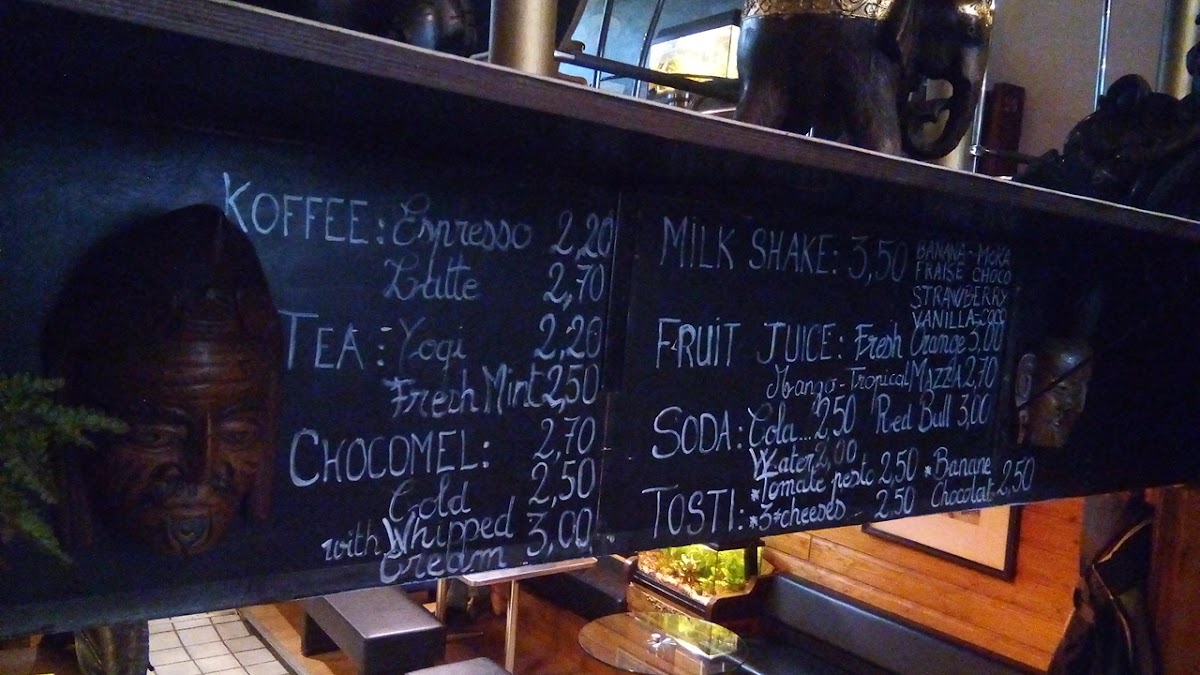 KOFFEE: Espresso 2,20
Latte 2,70
TEA: Yogi 2,20
*Fresh Mint 2,50
CHOCOMEL: 2,70
Cold 2,50
with Whipped
Cream 3,00
MILK SHAKE: 3,50
BANANA - MOKA
FRAISE CHOCO
STRAWBERRY
VANILLA - COCO
FRUIT JUICE: Fresh Orange 3,00
Mango - Tropical Mazza 2,70
SODA: Cola... 2,50 Red Bull 3,00
Water 2,00
TOSTI: *Tomate pesto 2,50 *Banane
*3 cheeses - 2,50 Chocolat 2,50